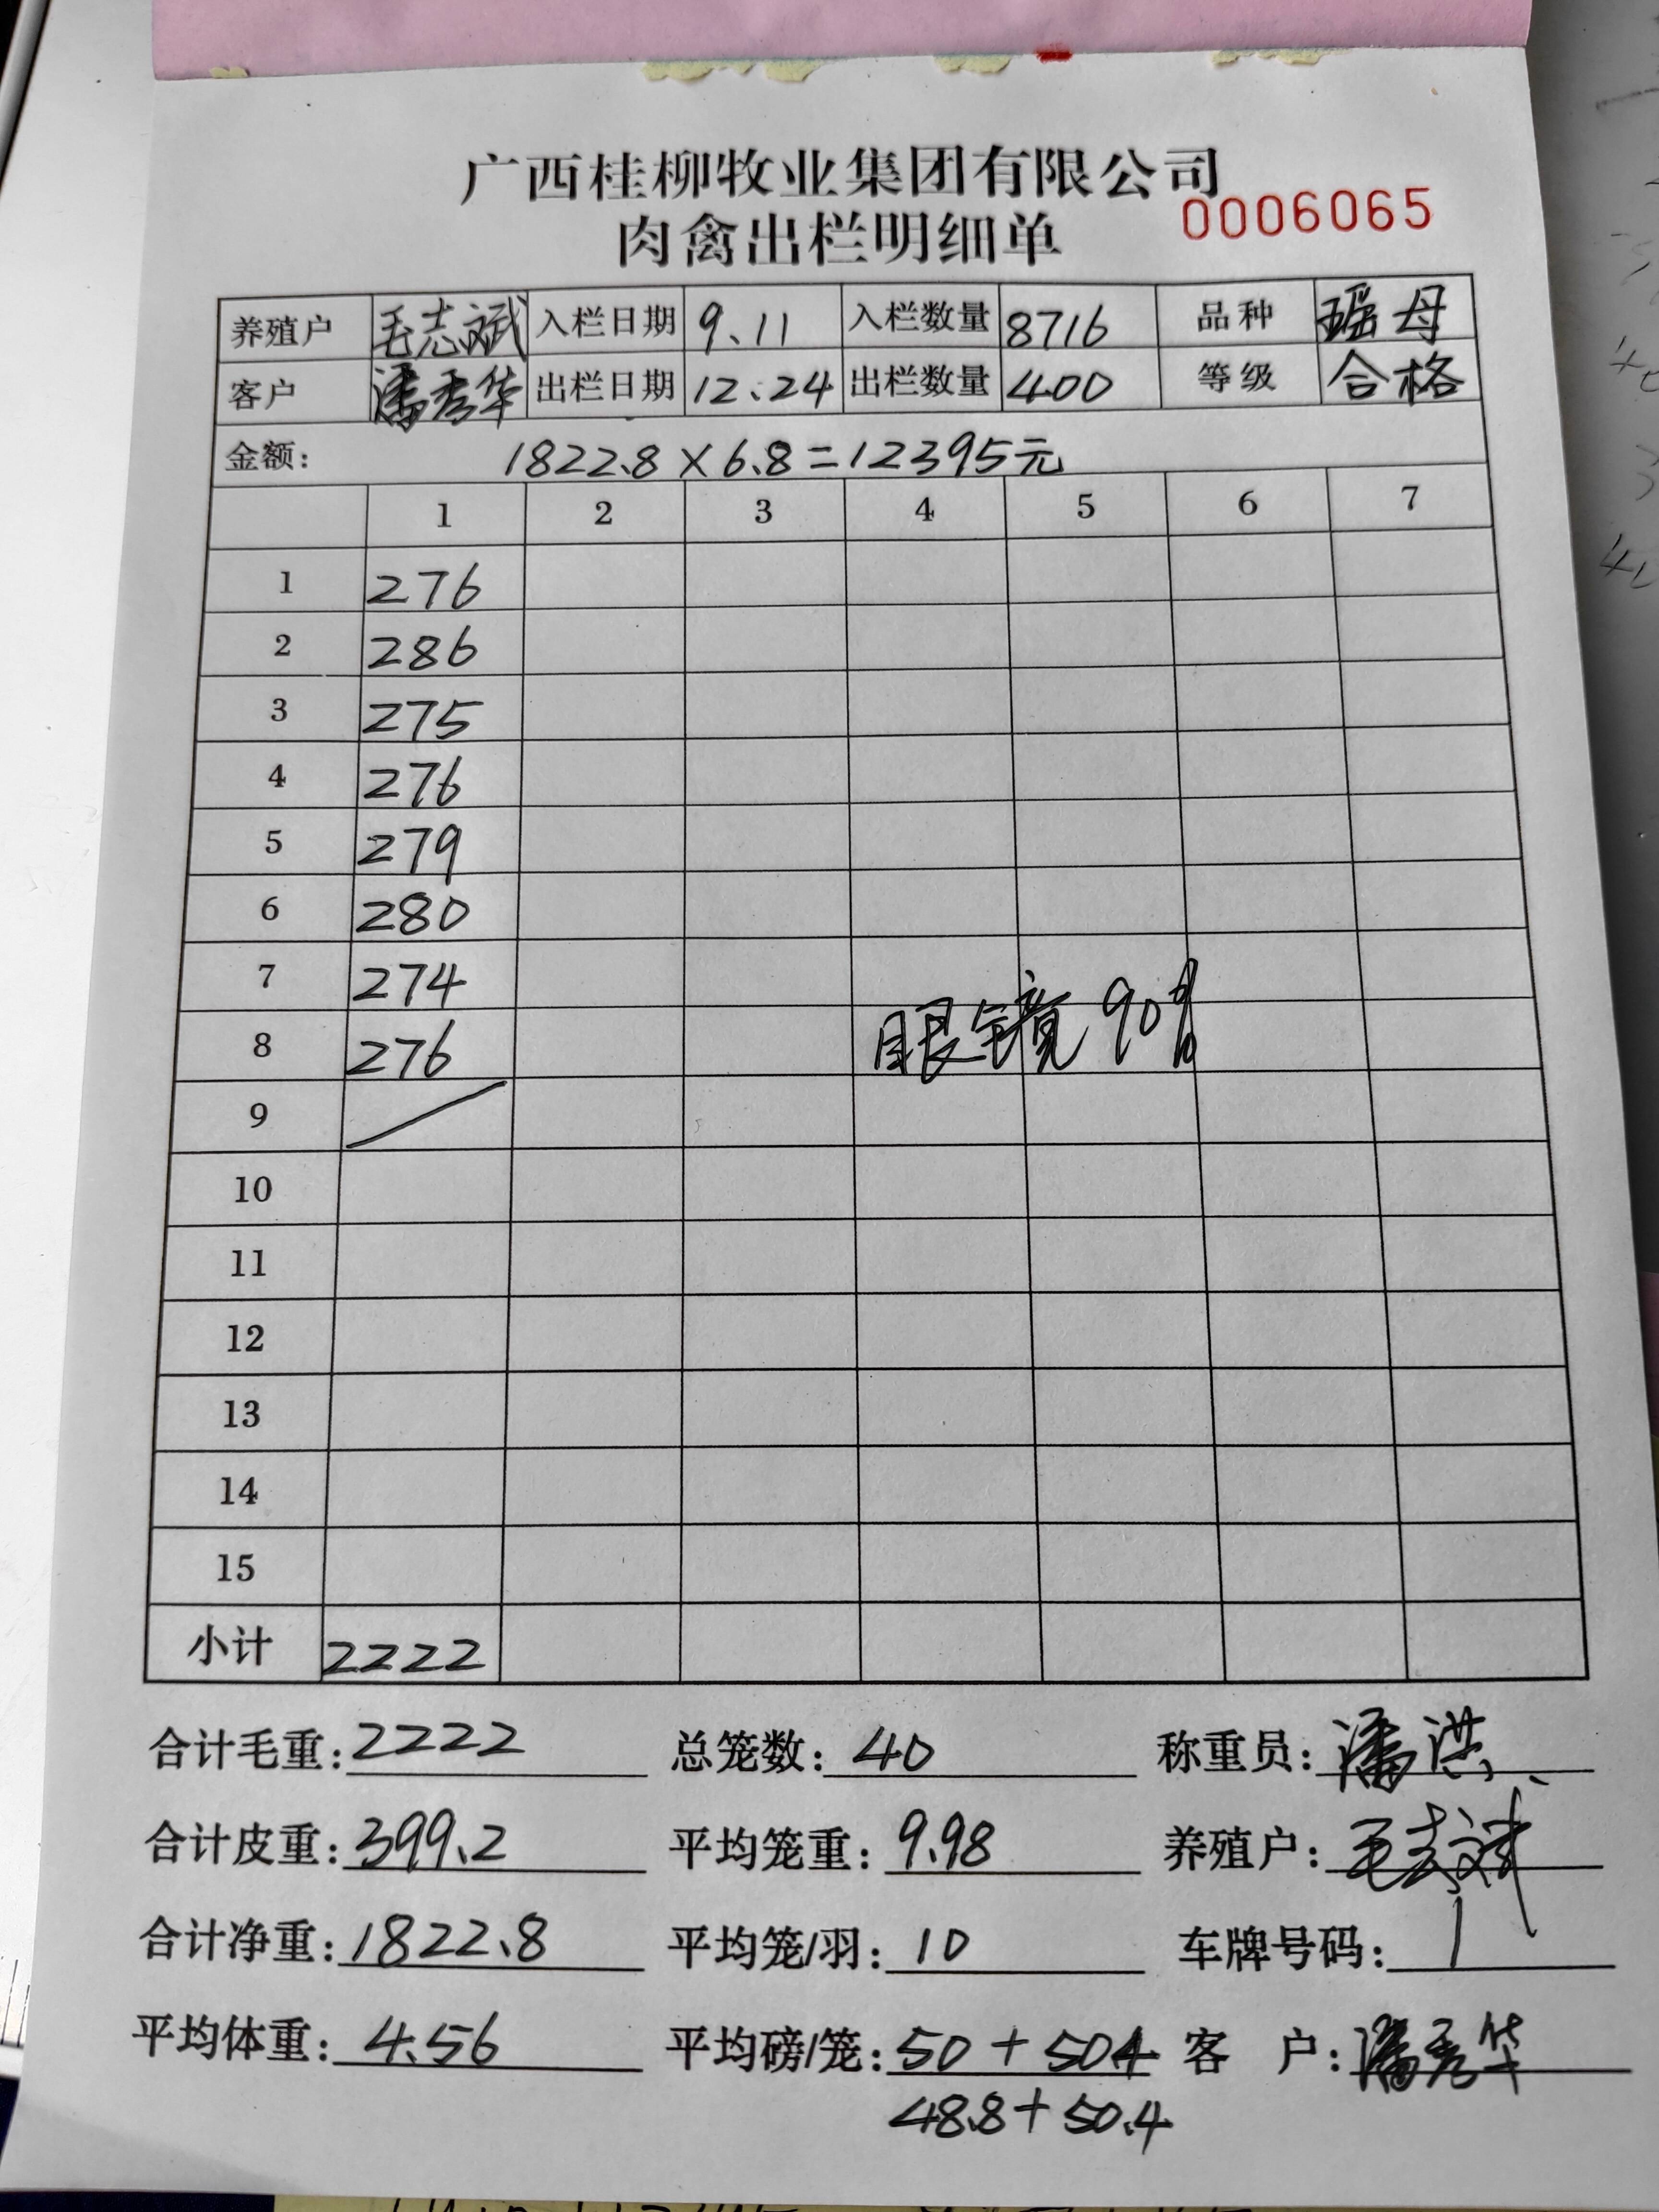 广西桂柳牧业集团有限公司
肉禽出栏明细单 0006065
养殖户 毛志斌 入栏日期 9.11 入栏数量 8716 品种 瑶母
客户 潘秀华 出栏日期 12.24 出栏数量 400 等级 合格
金额： 1822.8×6.8=12395元
1 2 3 4 5 6 7
1 276
2 286
3 275
4 276
5 279
6 280
7 274
8 276 眼镜90%
9
10
11
12
13
14
15
小计 2222
合计毛重：2222 总笼数：40 称重员：潘洪
合计皮重：399.2 平均笼重：9.98 养殖户：毛志斌
合计净重：1822.8 平均笼/羽：10 车牌号码：
平均体重：4.56 平均磅/笼：50+50.4 客 户：潘秀华
48.8+50.4